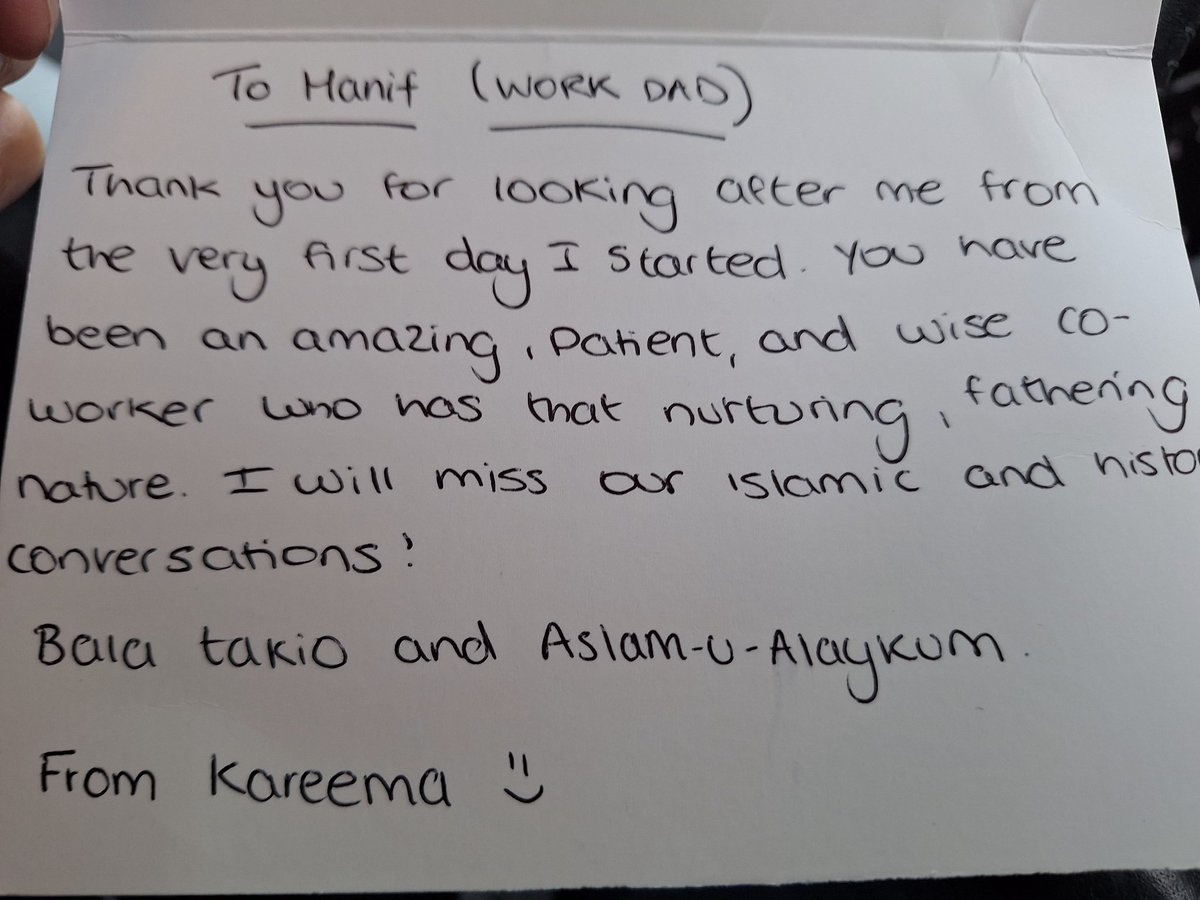 To Hanif (WORK DAD)
Thank you for looking after me from
the very first day I started. You have
been an amazing, patient, and wise co-
worker who has that nurturing, fathering
nature. I will miss our islamic and histo
conversations!
Bala takio and Aslam-u-Alaykum.
From Kareema